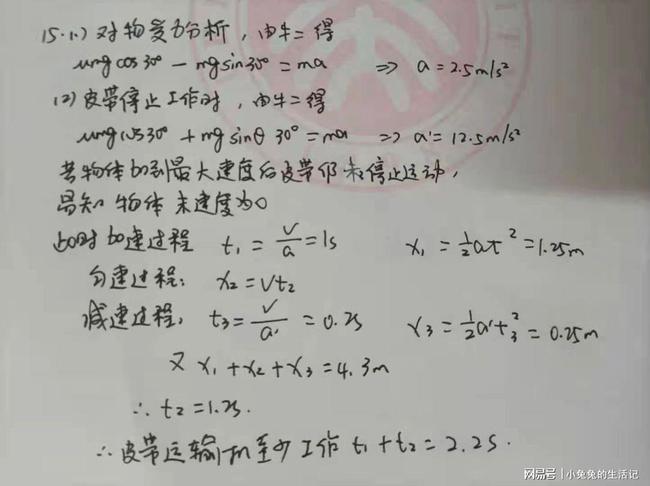 15.(1) 对物受力分析，由牛二得
μmgcos30° - mgsin30° = ma ⇒ a = 2.5m/s²
(2) 皮带停止工作时，由牛二得
μmgcos30° + mgsinθ 30° = ma' ⇒ a' = 12.5m/s²
若物体加到最大速度后皮带仍未停止运动，
易知 物体末速度为0
此时加速过程 t₁ = v/a = 1s x₁ = ½at² = 1.25m
匀速过程： x₂ = vt₂
减速过程， t₃ = v/a' = 0.2s x₃ = ½a't₃² = 0.25m
又 x₁ + x₂ + x₃ = 4.3m
∴ t₂ = 1.2s.
∴ 皮带运输机至少工作 t₁ + t₂ = 2.2s.
网易号 | 小兔兔的生活记